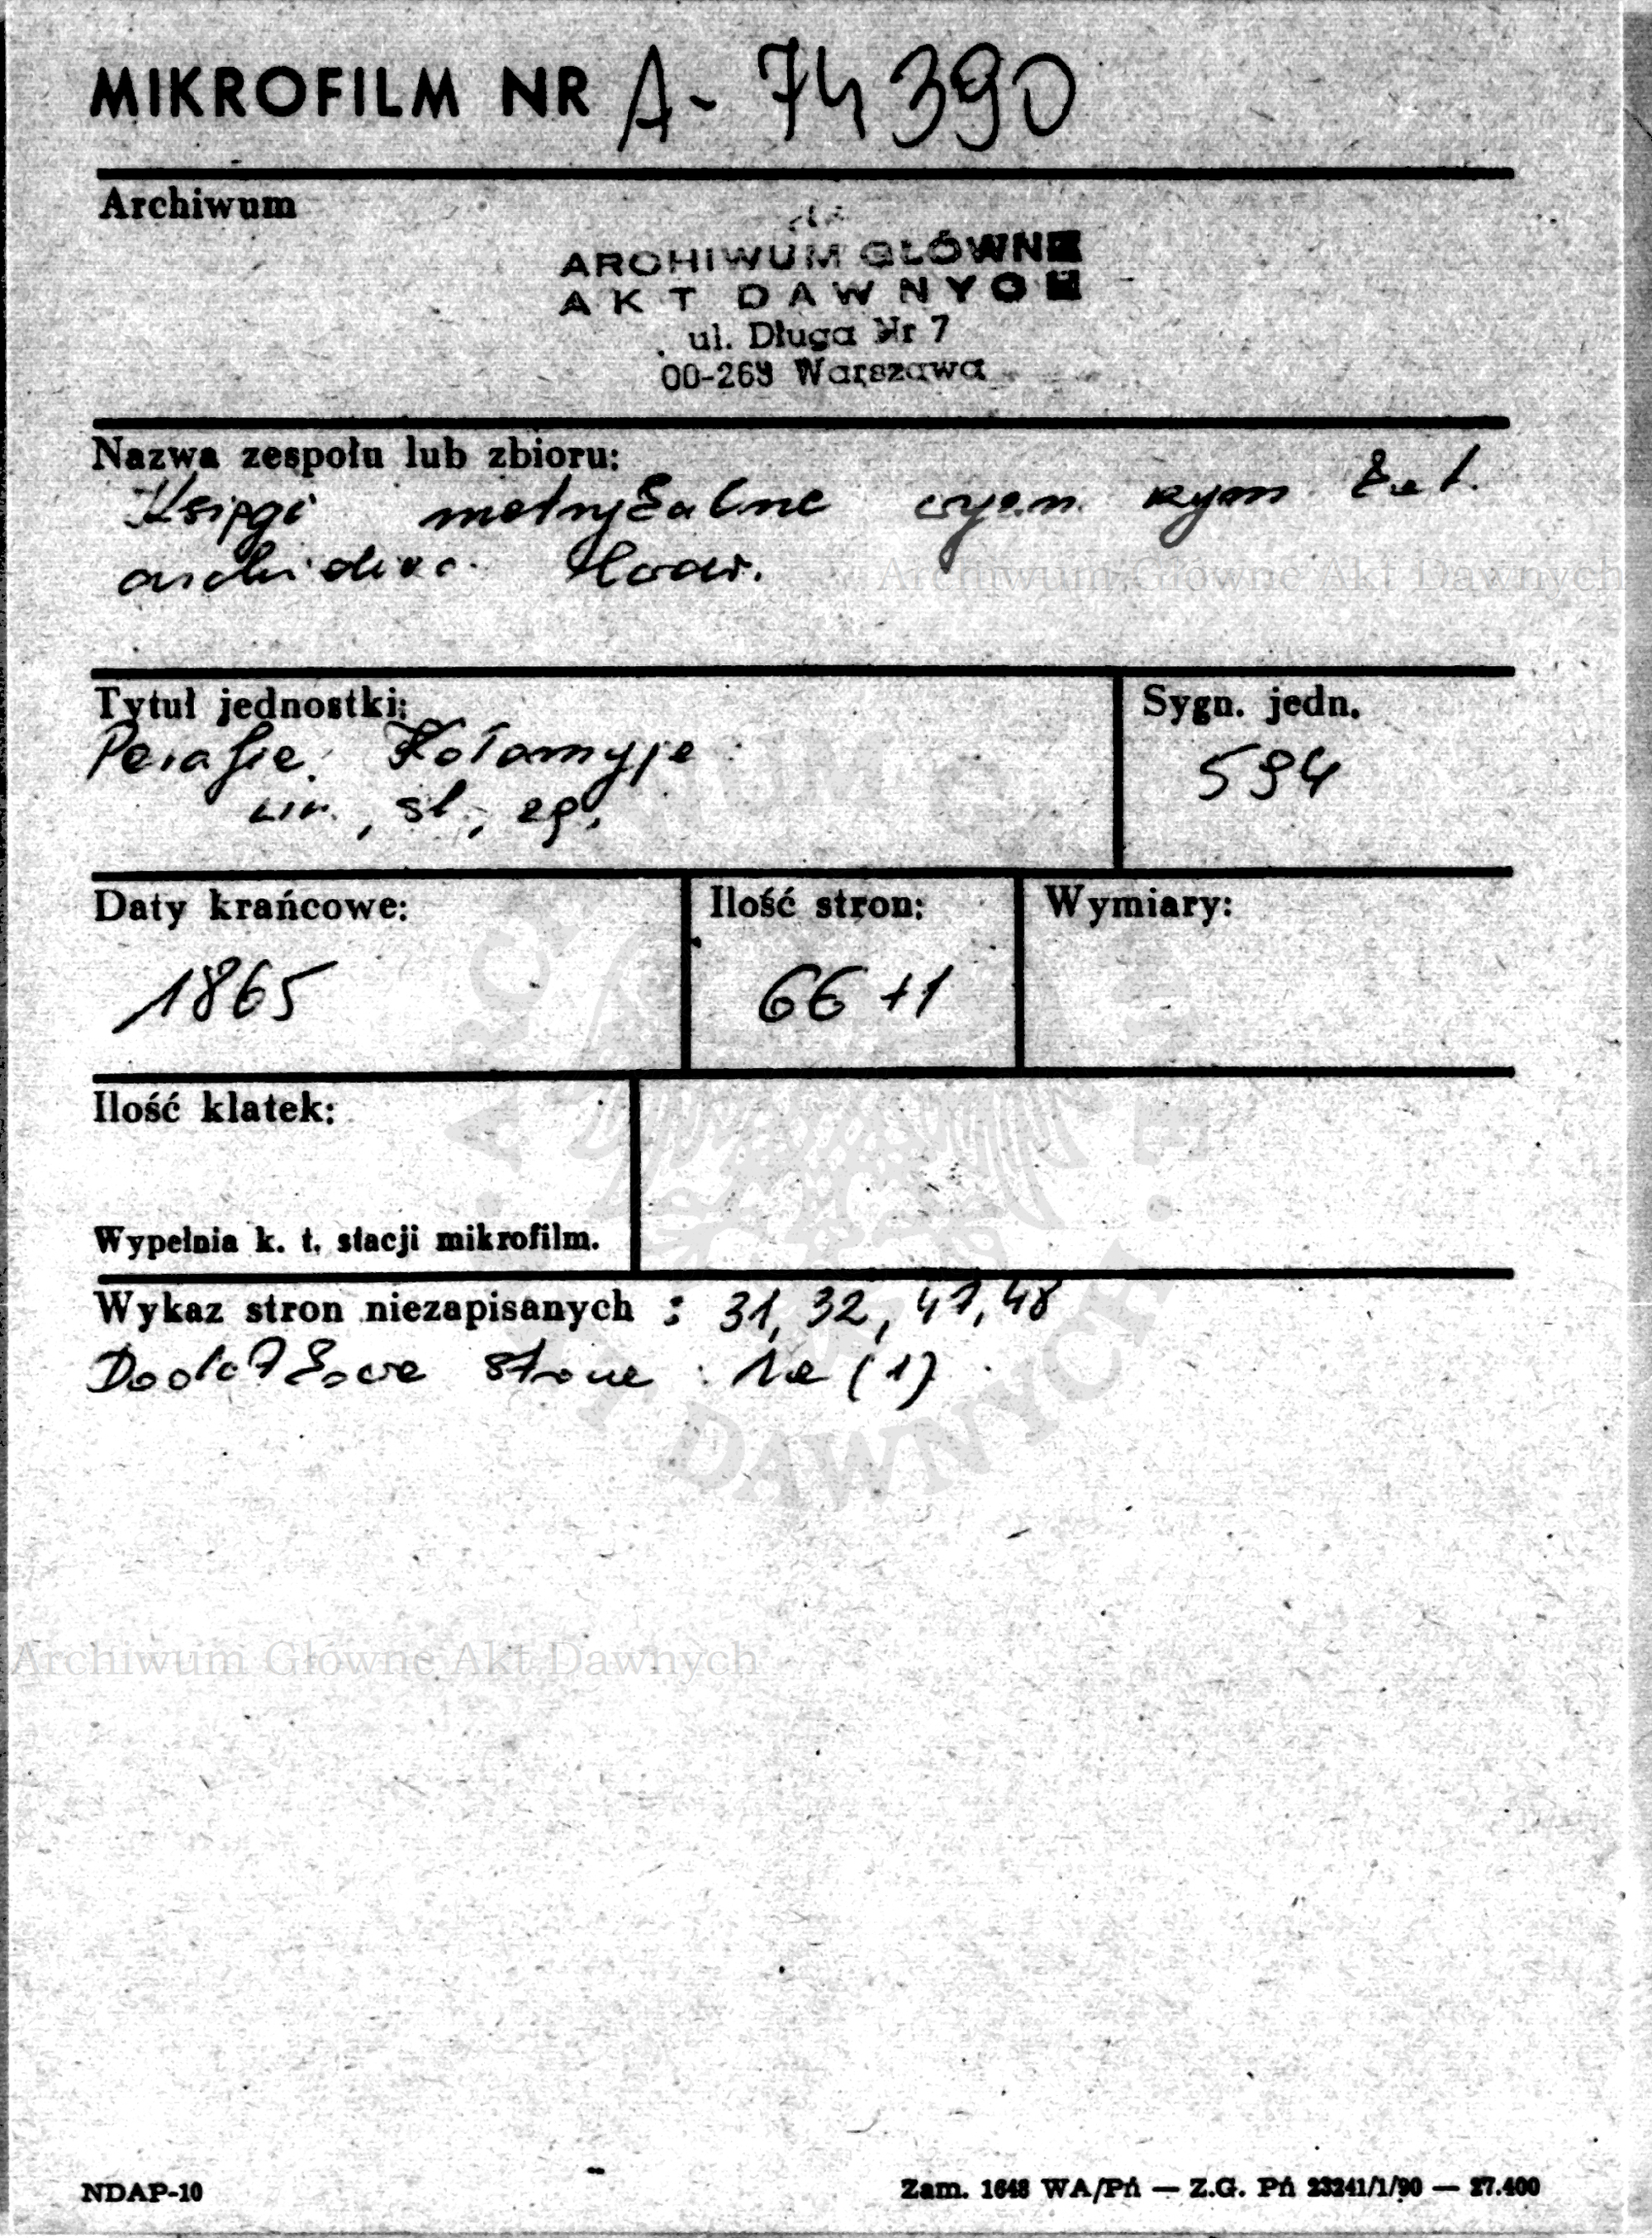 MIKROFILM NR A-74390
Archiwum
ARCHIWUM GŁÓWNE
AKT DAWNYCH
ul. Długa Nr 7
00-269 Warszawa
Nazwa zespołu lub zbioru:
Księgi metrykalne wyzn. rzym kat.
archidiec.
Archiwum Główne Akt Dawnych
Tytuł jednostki:
Parafia: Kołomyja
ur., śl., zg.
Sygn. jedn.
594
Daty krańcowe:
1865
Ilość stron:
66+1
Wymiary:
Ilość klatek:
Wypełnia k. t. stacji mikrofilm.
Wykaz stron niezapisanych : 31, 32, 47, 48
Dodatkowe strone : 1a (1)
Archiwum Główne Akt Dawnych
NDAP-10
Zam. 1648 WA/Pń — Z.G. Pń 23241/1/90 — 27.400